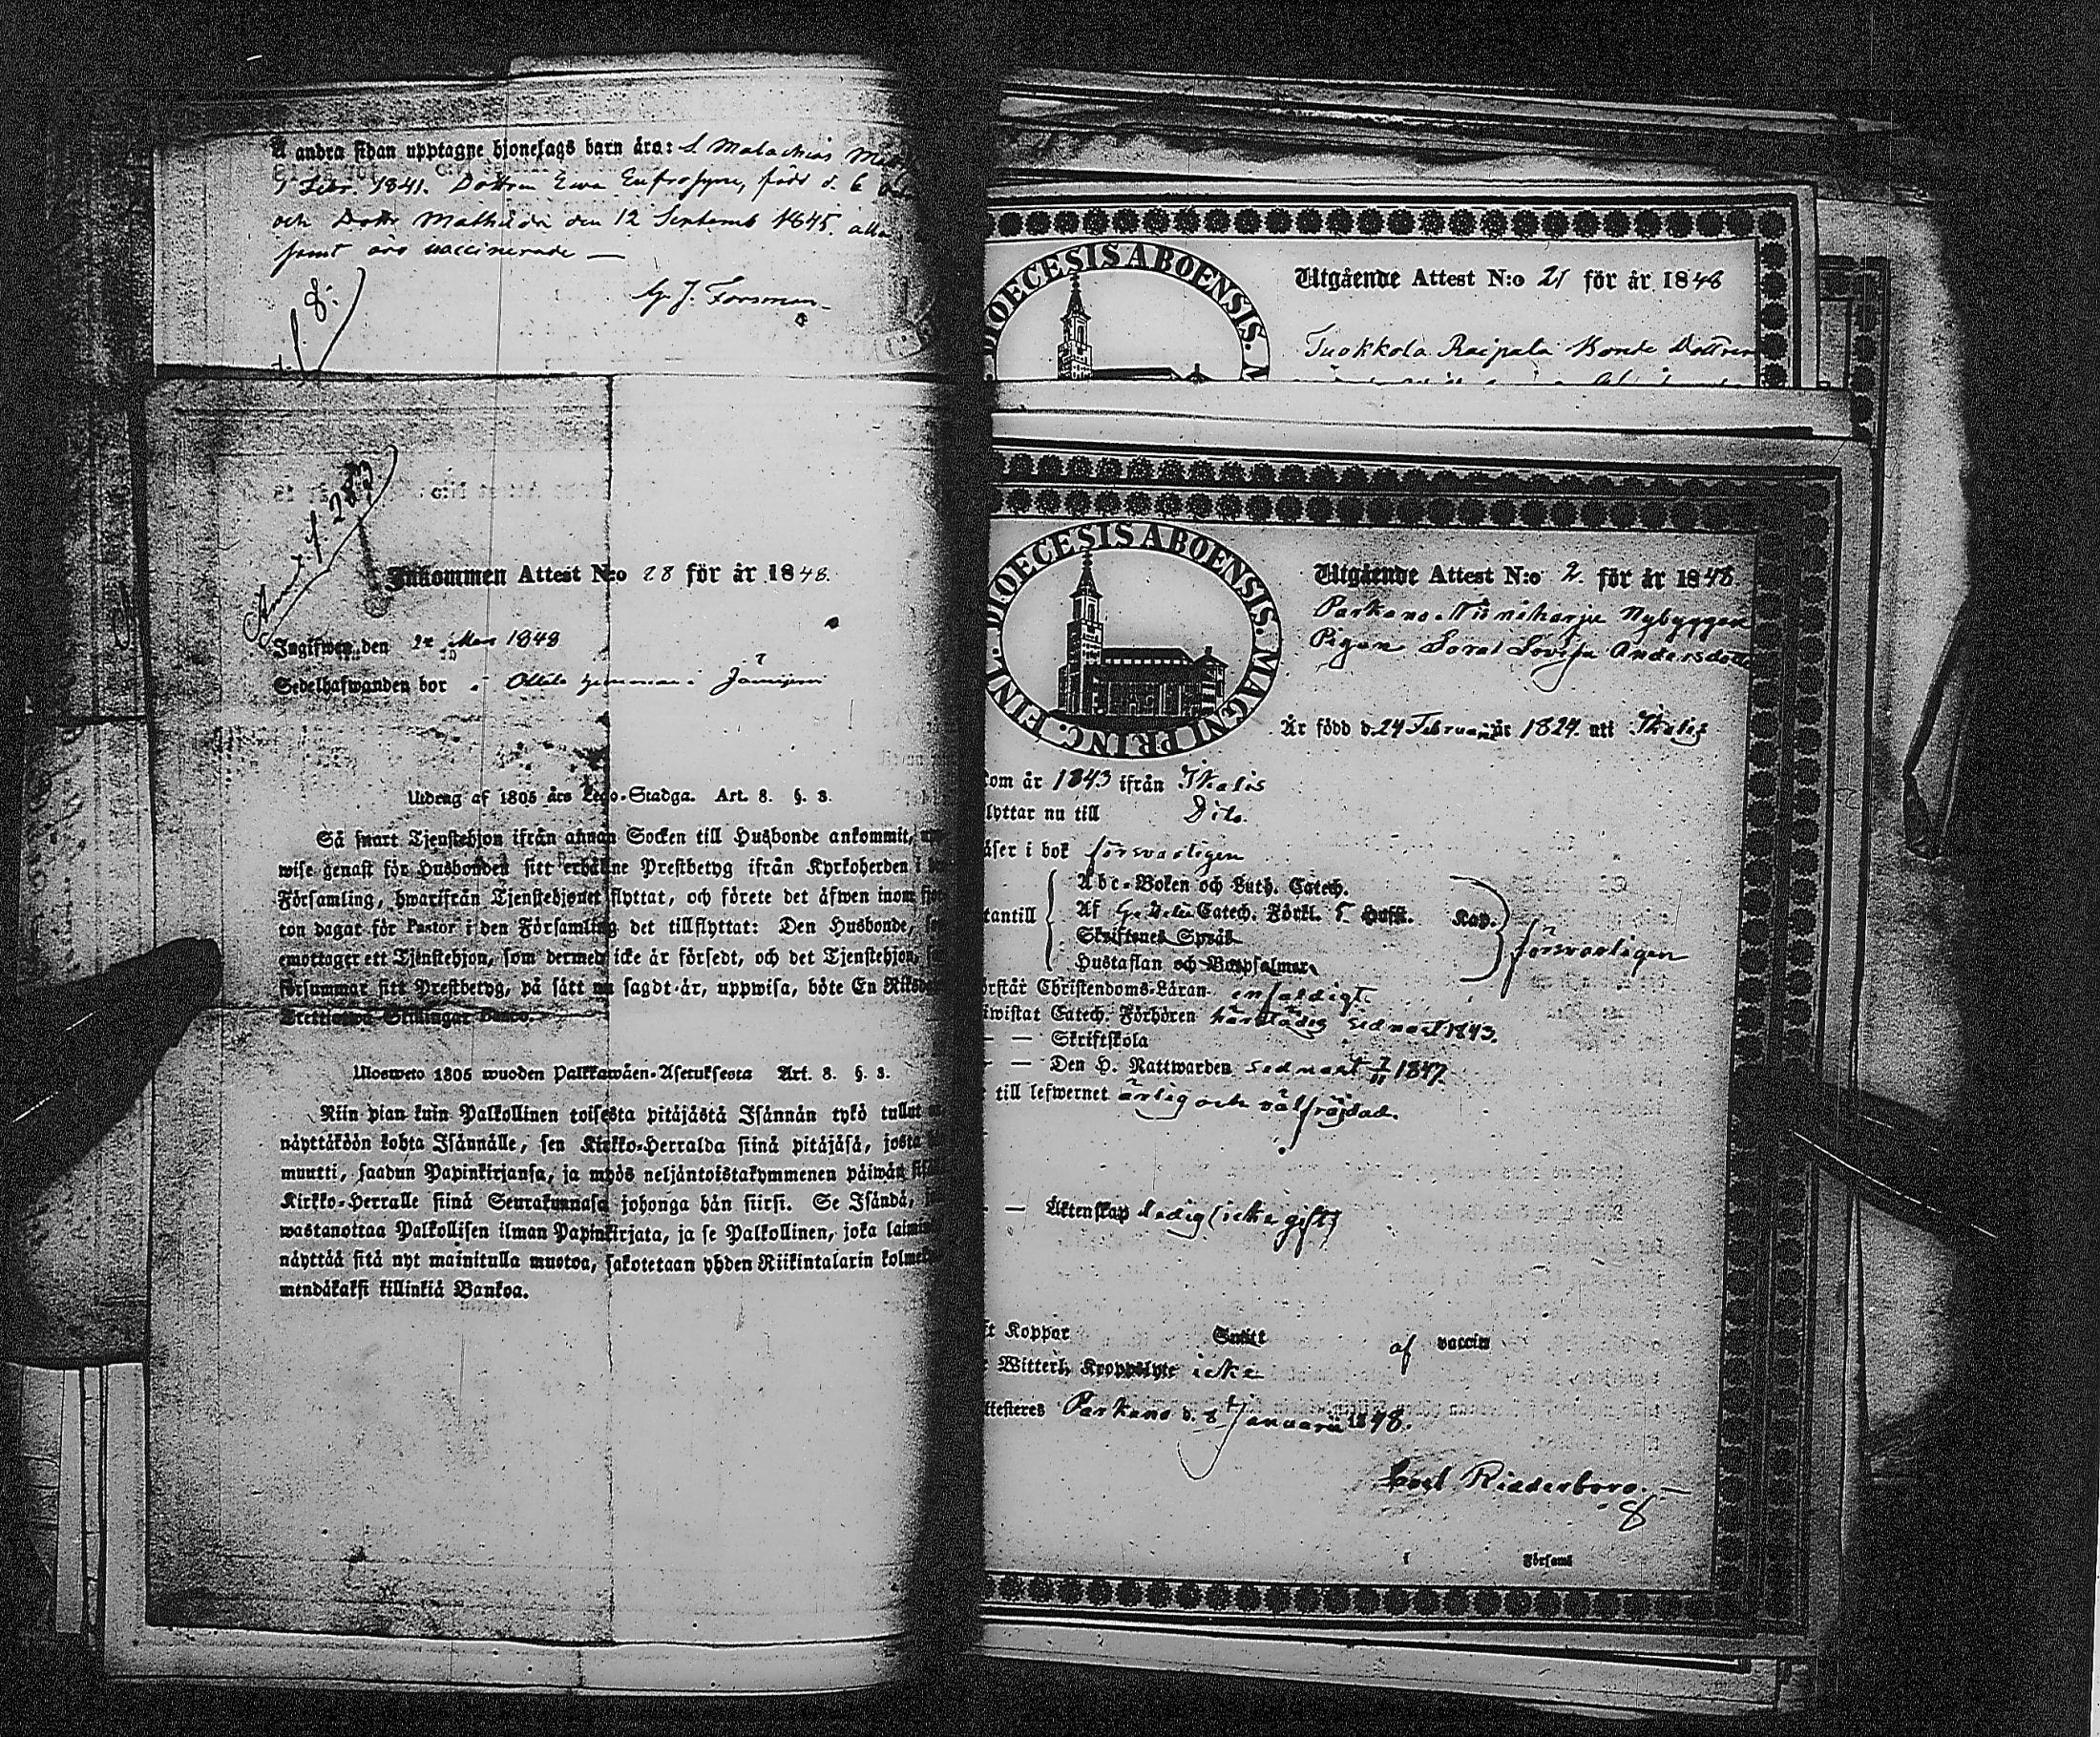 å andra sidan upptagne hjonelags barn äro: S. Malachias
1 Febr. 1841. Dottren Ewa Eufrosyne, född d. 6
och Dottr Mathilda den 12 Septemb 1845. alla
samt äro vaccinerade —
J. Forsman
Inkommen Attest N:o 28 för år 1848.
Ingifwen den Mars 1848
Sedelhafwanden bor i
Utdrag af 1805 års Lego-Stadga. Art. 8. §. 3.
Så snart Tjenstehjon ifrån annan Socken till Husbonde ankommit,
wise genast för Husbonden sitt erhållne Prestbetyg ifrån Kyrkoherden i
Församling, hwarifrån Tjenstehjonet flyttat, och förete det äfwen inom
ton dagar för Pastor i den Församling det tillflyttat: Den Husbonde,
emottager ett Tjenstehjon, som dermed icke är försedt, och det Tjenstehjon,
försummar sitt Prestbetyg, på sätt nu sagdt är, uppwisa, böte En Riksd
Trettiotwå Skillingar Banco.
Ulosweto 1805 wuoden Palkkawäen-Asetuksesta Art. 8. §. 3.
Niin pian kuin Palkollinen toisesta pitäjästä Isännän tykö tullut
näyttäköön kohta Isännälle, sen Kirkko-Herralda siinä pitäjäsä, josta
muutti, saadun Papinkirjansa, ja myös neljäntoistakymmenen päiwän
Kirkko-Herralle siinä Seurakunnasa johonga hän siirsi. Se Isändä,
wastanottaa Palkollisen ilman Papinkirjata, ja se Palkollinen, joka
näyttää sitä nyt mainitulla muotoa, sakotetaan yhden Riikintalarin
mendäkaksi killinkiä Bankoa.
DIOECESIS ABOENSIS.
Utgående Attest N:o 21 för år 1848
Tuokkola Raipala Bonde Dottren
FINL. DIOECESIS ABOENSIS. MAGNI PRINC.
Utgående Attest N:o 2. för år 1848.
Parkano Nybyggen
Pigan Sara Lovisa Andersdotter
Är född d. 24 Februarii år 1824. uti Ikalis
kom år 1843 ifrån Ikalis
flyttar nu till Dito.
läser i bok försvarligen
utantill
Abc-Boken och Luth. Catech.
Af Catech. Förkl. 5. Hufst. Kap.
Skriftenes Språk
Hustaflan och Botpsalmer
försvarligen
förstår Christendoms-Läran enfaldigt.
bewistat Catech. Förhören härstädes sednast 1843.
— — Skriftskola
— — Den H. Nattwarden sednast 7/11 1847.
till lefwernet ärlig och välfräjdad.
— — Äktenskap ledig (icke gift)
Haft Koppor Smitt af vaccin
Witterl. Kroppslyte icke
Attesteras Parkano d. 8 Januarii 1848.
Carl Ridderborg. —
i Församl